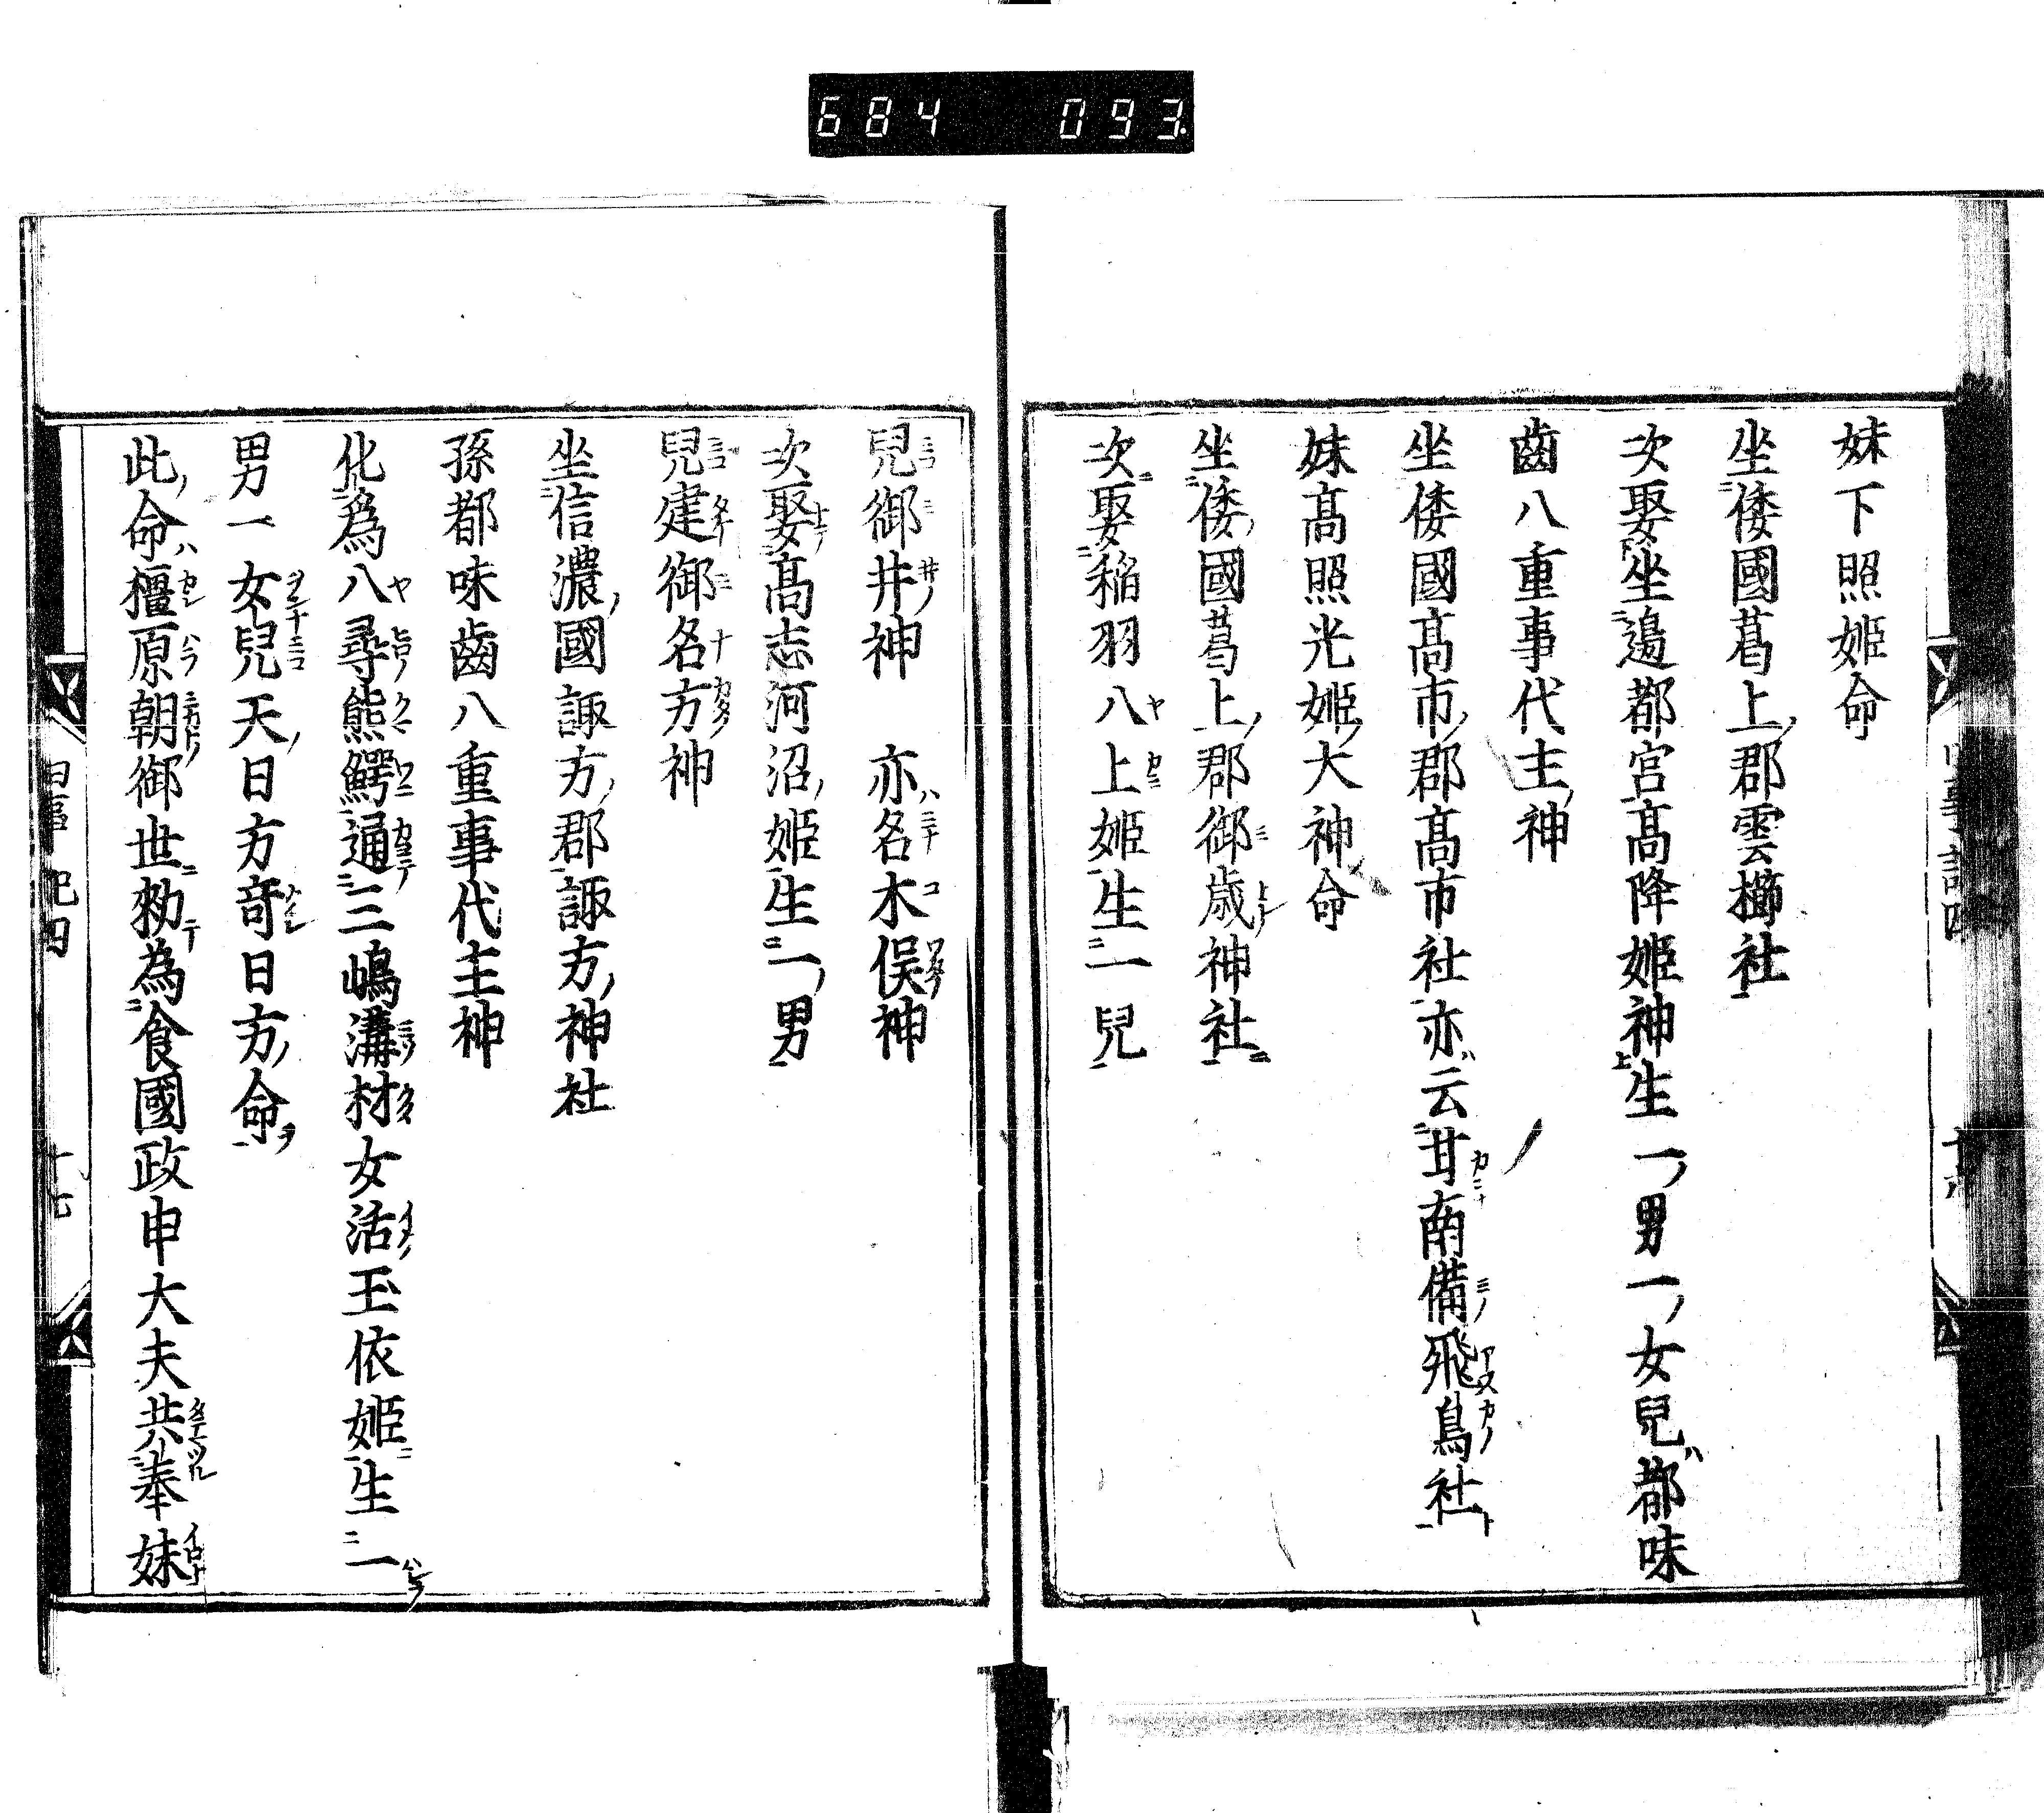 684 093
妹下照姫命
坐倭國葛上郡雲櫛社
次娶坐邉都宮髙降姫神生一男一女兒都味
齒八重事代主神
坐倭國髙市郡髙市社亦云甘南備飛鳥社
妹髙照光姫大神命
坐倭國葛上郡御歳神社
次娶稲羽八上姫生一兒
兒御井神 亦名木俣神
次娶髙志河沼姫生一男
兒建御名方神
坐信濃國諏方郡諏方神社
孫都味齒八重事代主神
化為八尋熊鰐通三嶋溝杭女活玉依姫生一
男一女兒天日方竒日方命
此命橿原朝御世勑為食國政申大夫共奉妹